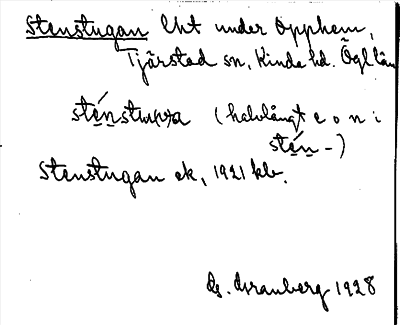 Stenstugan lht under Opphem,
Tjärstad sn, Kinda hd. Ögl län
(halvlångt e o n i
stén-)
Stenstugan ek, 1921 kbr.
Granberg 1928